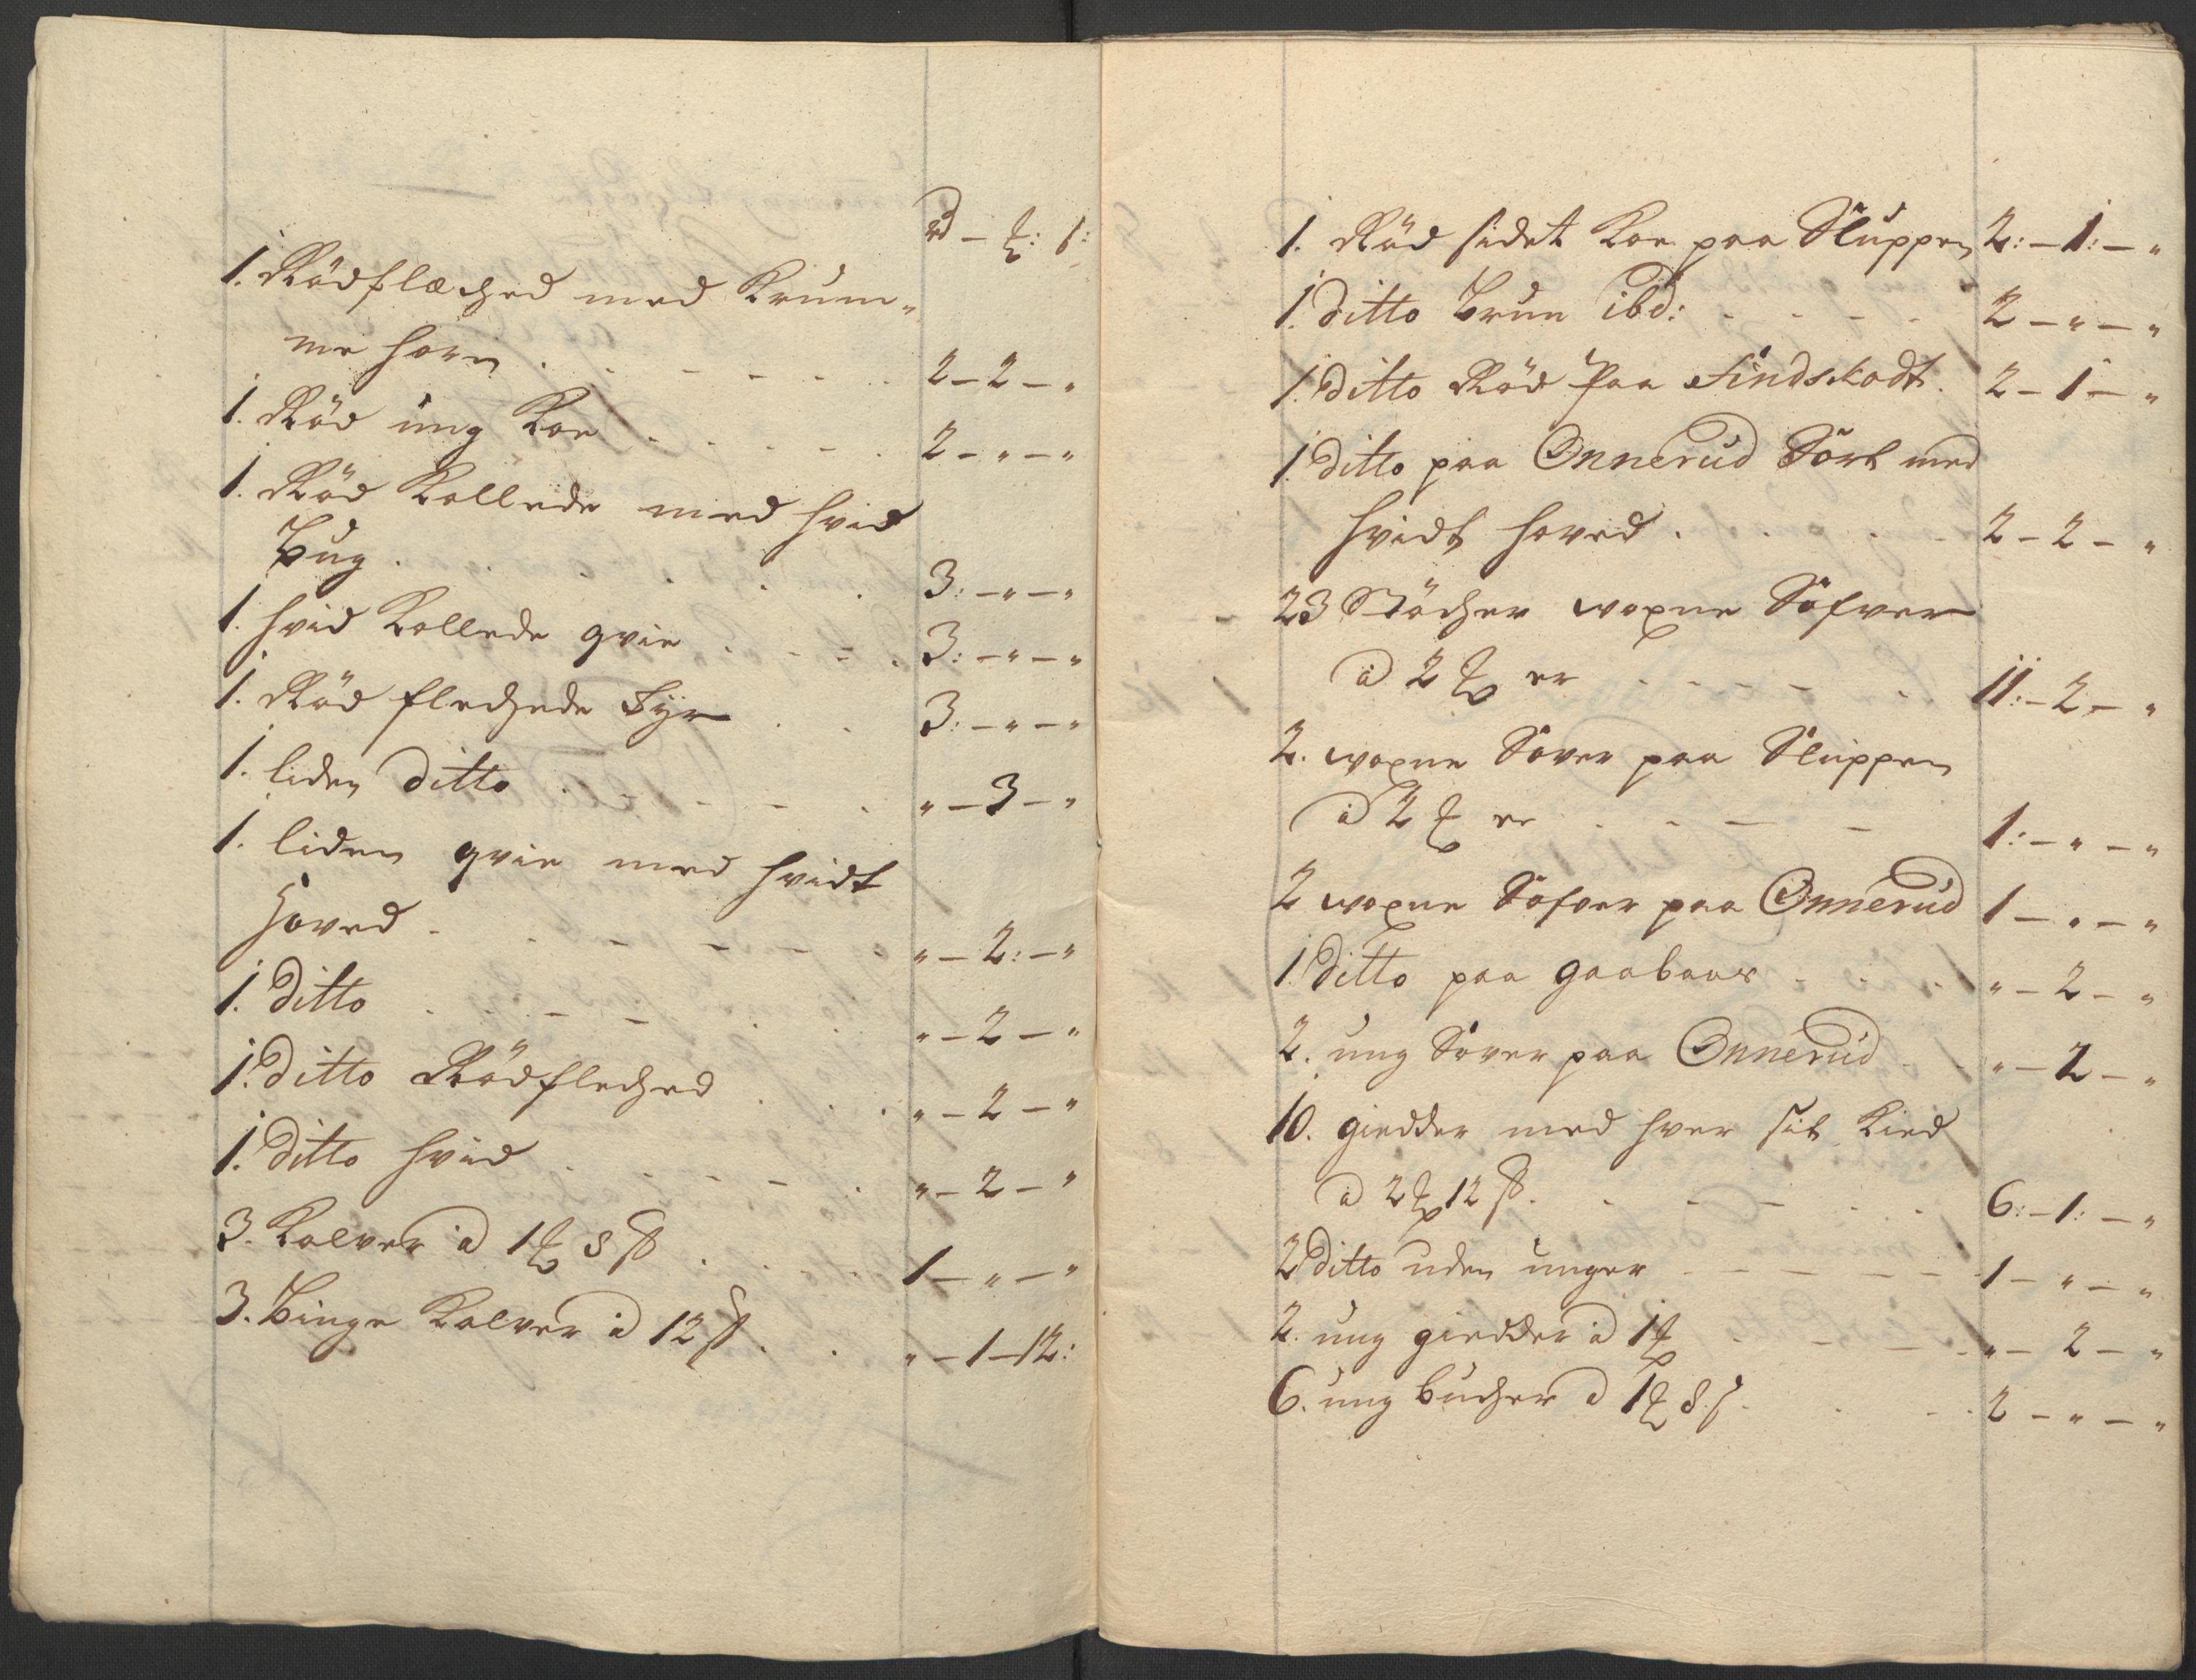 rd – ꝑ: s:
1. Rödflæched med Krum„
me horn . . . . . . 2 – 2 – „
1. Röd ung Koe . . . . 2 – „ – „
1. Röd Kollede med hvid
Bug . . . . . 3: – „ – „
1. hvid Kollede qvie . . . . 3: – „ – „
1. Röd flechede Tyr . . 3: – „ – „
1. liden ditto . . . . . „ – 3 – „
1. liden qvie med hvidt
Hoved . . . . . . „ – 2: – „
1. Ditto . . . . . . „ – 2 – „
1. Ditto Rödfleched . . . „ – 2 – „
1. Ditto hvid . . . . . „ – 2 – „
3. Kalver a 1 ꝑ 8 ß . . . 1 – „ – „
3. Binge Kalver a 12 ß . . „ – 1 – 12:
1. Röd sidet Koe paa Sluppen 2: – 1: – „
1. ditto brun ibd: . . . . 2 – „ – „
1. ditto Röd Paa Findskodt . 2 – 1 – „
1 ditto paa Onnerud Sort med
hvidt hoved . . . . 2 – 2 – „
23 Stöcher voxne Söfver
a 2 ꝑ er . . . . . 11: – 2 – „
2. voxne Sover paa Sluppen
a 2 ꝑ er . . . . 1: – „ – „
2 voxne Sofver paa Onnerud 1 – „ – „
1. Ditto paa gaabaar . . . „ – 2 – „
2. ung Sover paa Onnerud . . „ – 2 – „
10. giedder med hver sit Kied
a 2 ꝑ 12 ß . . . . . 6: – 1: – „
2 Ditto uden unger . . . . . 1 – „ – „
2. ung giedder a 1 ꝑ . . . . „ – 2 – „
6. ung bucher a 1 ꝑ 8 s . . . . 2 – „ – „